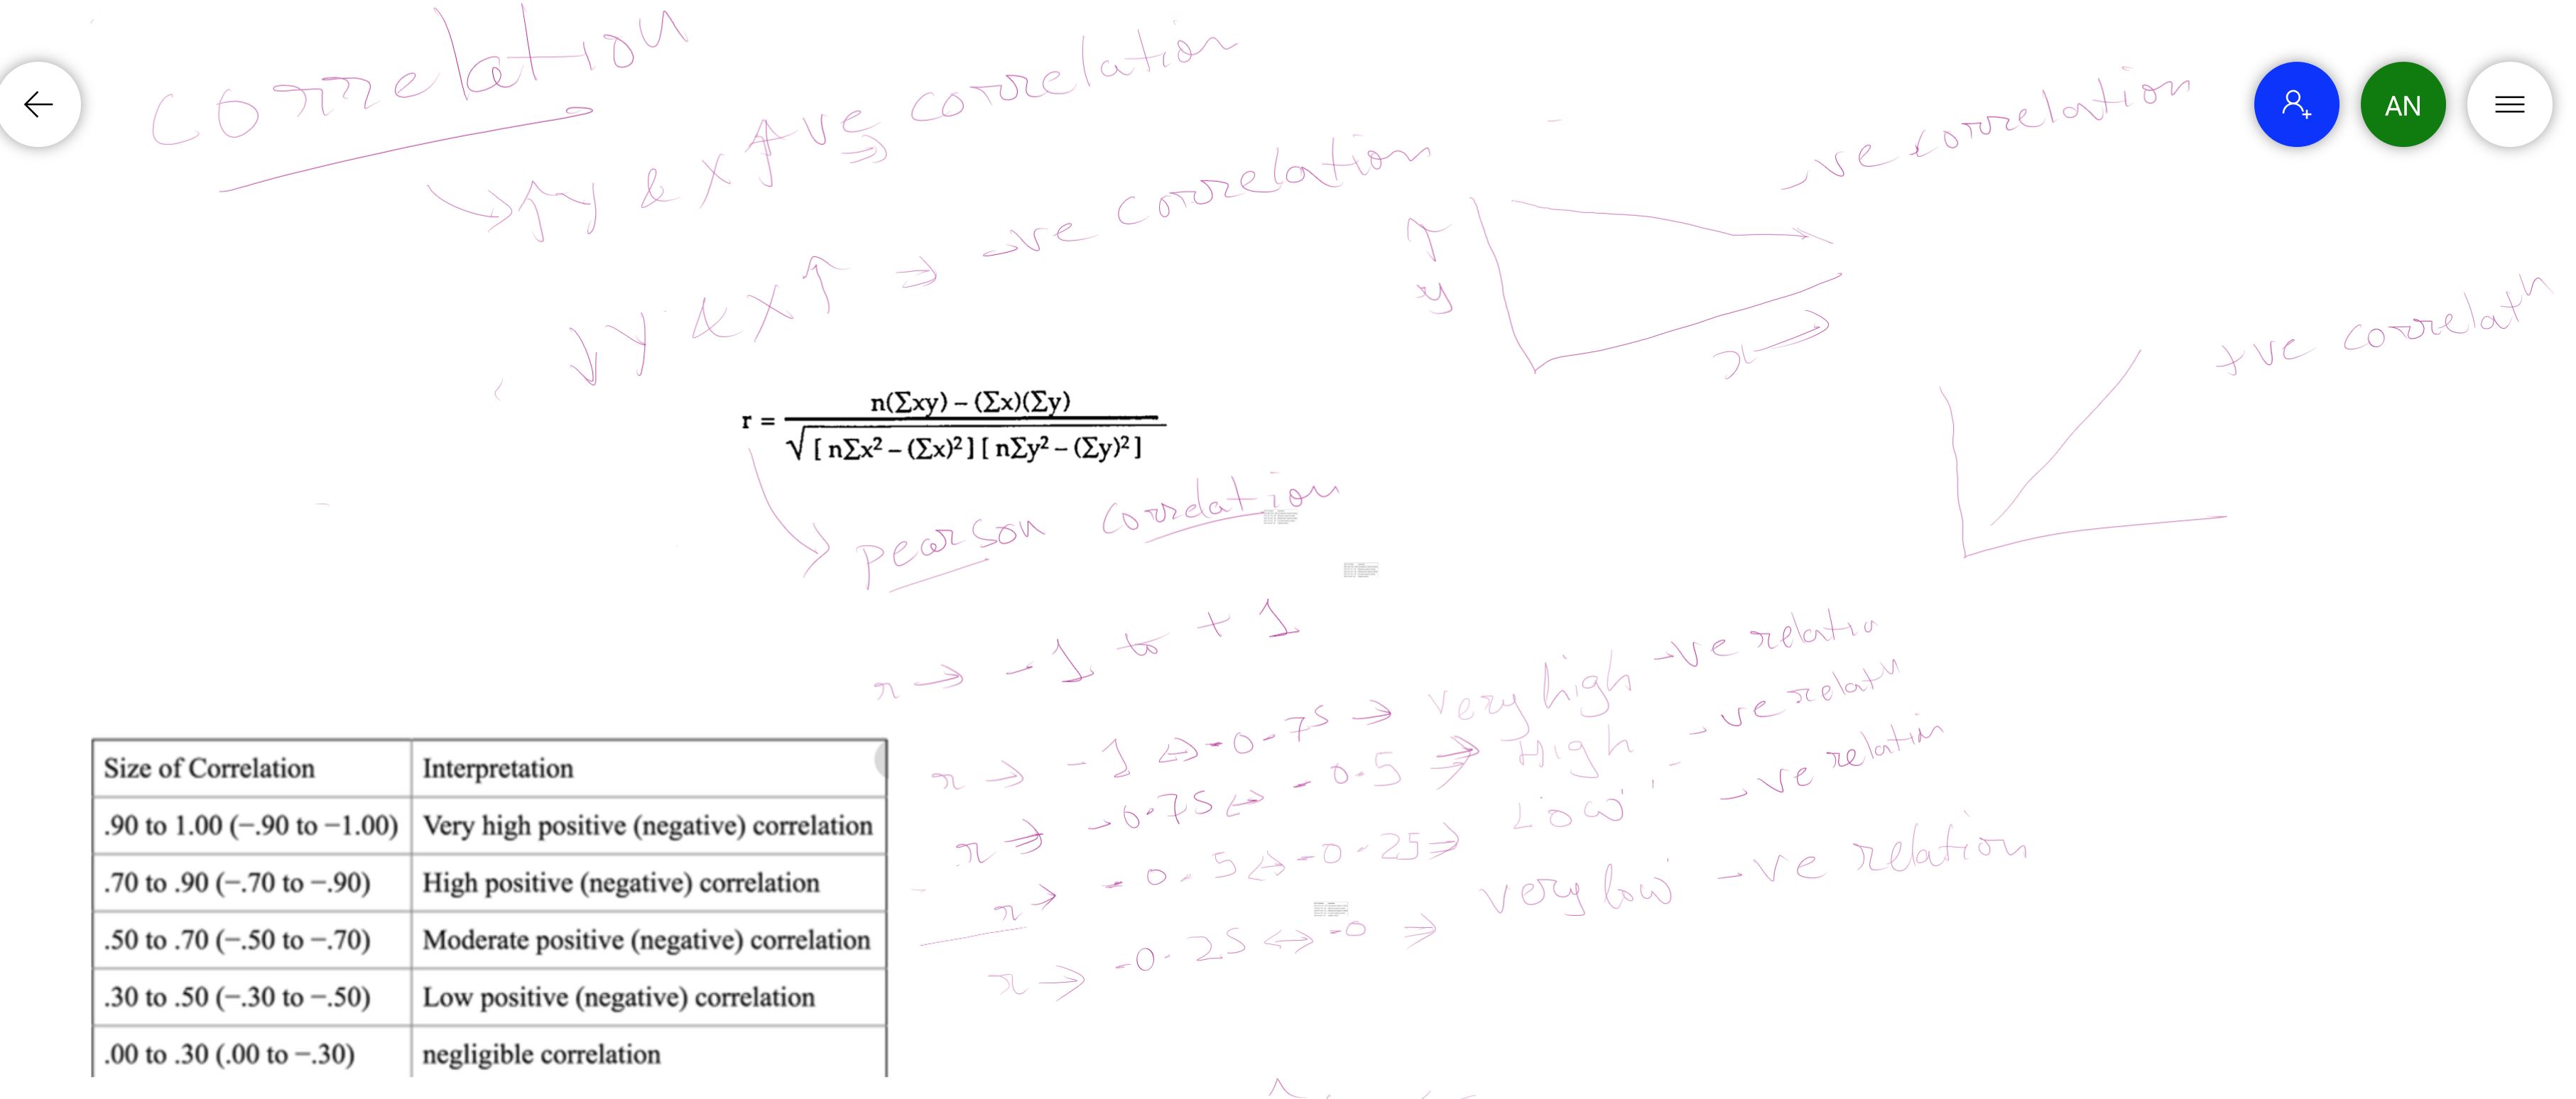 Correlation
↑y & x ↑ ve ⇒ correlation
↓y & x↑ ⇒ -ve correlation
-ve correlation
↑
y
x →
+ve correlatn
r = n(∑xy) – (∑x)(∑y)
√[ n∑x² – (∑x)² ] [ n∑y² – (∑y)² ]
pearson correlation
r → -1 to +1
r → -1 ⇔ -0.75 → very high -ve relatio
r ⇒ -0.75 ⇔ -0.5 ⇒ High -ve relatn
r → -0.5 ⇔ -0.25 ⇒ Low -ve relation
r → -0.25 ⇔ -0 ⇒ very low -ve relation
Size of Correlation Interpretation
.90 to 1.00 (−.90 to −1.00) Very high positive (negative) correlation
.70 to .90 (−.70 to −.90) High positive (negative) correlation
.50 to .70 (−.50 to −.70) Moderate positive (negative) correlation
.30 to .50 (−.30 to −.50) Low positive (negative) correlation
.00 to .30 (.00 to −.30) negligible correlation
AN